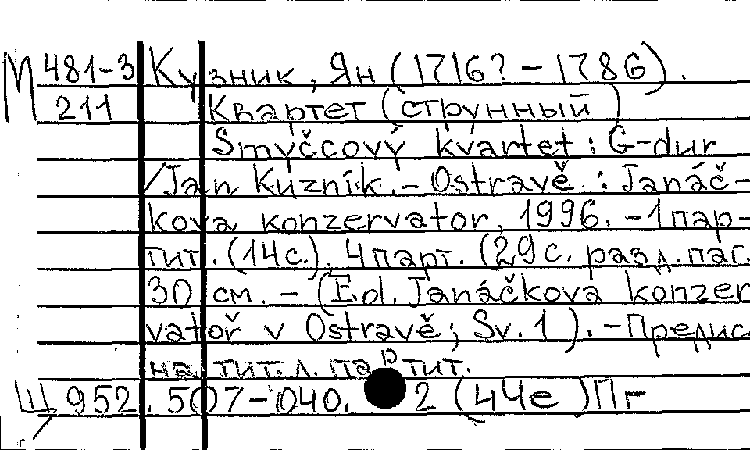 М 481-3 Кузник, Ян (1716? - 1786).
211 Квартет (струнный)
Smyčcový kvartet : G-dur
/Jan Kuzník. - Ostravě : Janáč-
kova konzervator, 1996. - 1 пар-
тит. (14 с.), 4 парт. (29 с. разд. паг.
30 см. - (Ed. Janáčkova konzer
vatoř v Ostravě; Sv. 1). - Предис
на тит. л. партит.
Ш 952.507-040. 2 (4Че) Пг